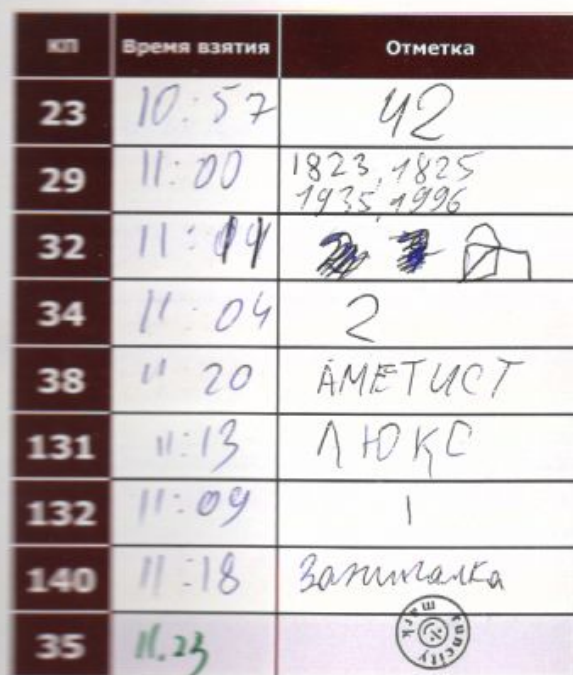 КП Время взятия Отметка
23 10:57 42
29 11:00 1823, 1825
1935, 1996
32 11:11
34 11:04 2
38 11 20 АМЕТИСТ
131 11:13 ЛЮКС
132 11:09 1
140 11:18 Зажигалка
35 11.23 runcity mark